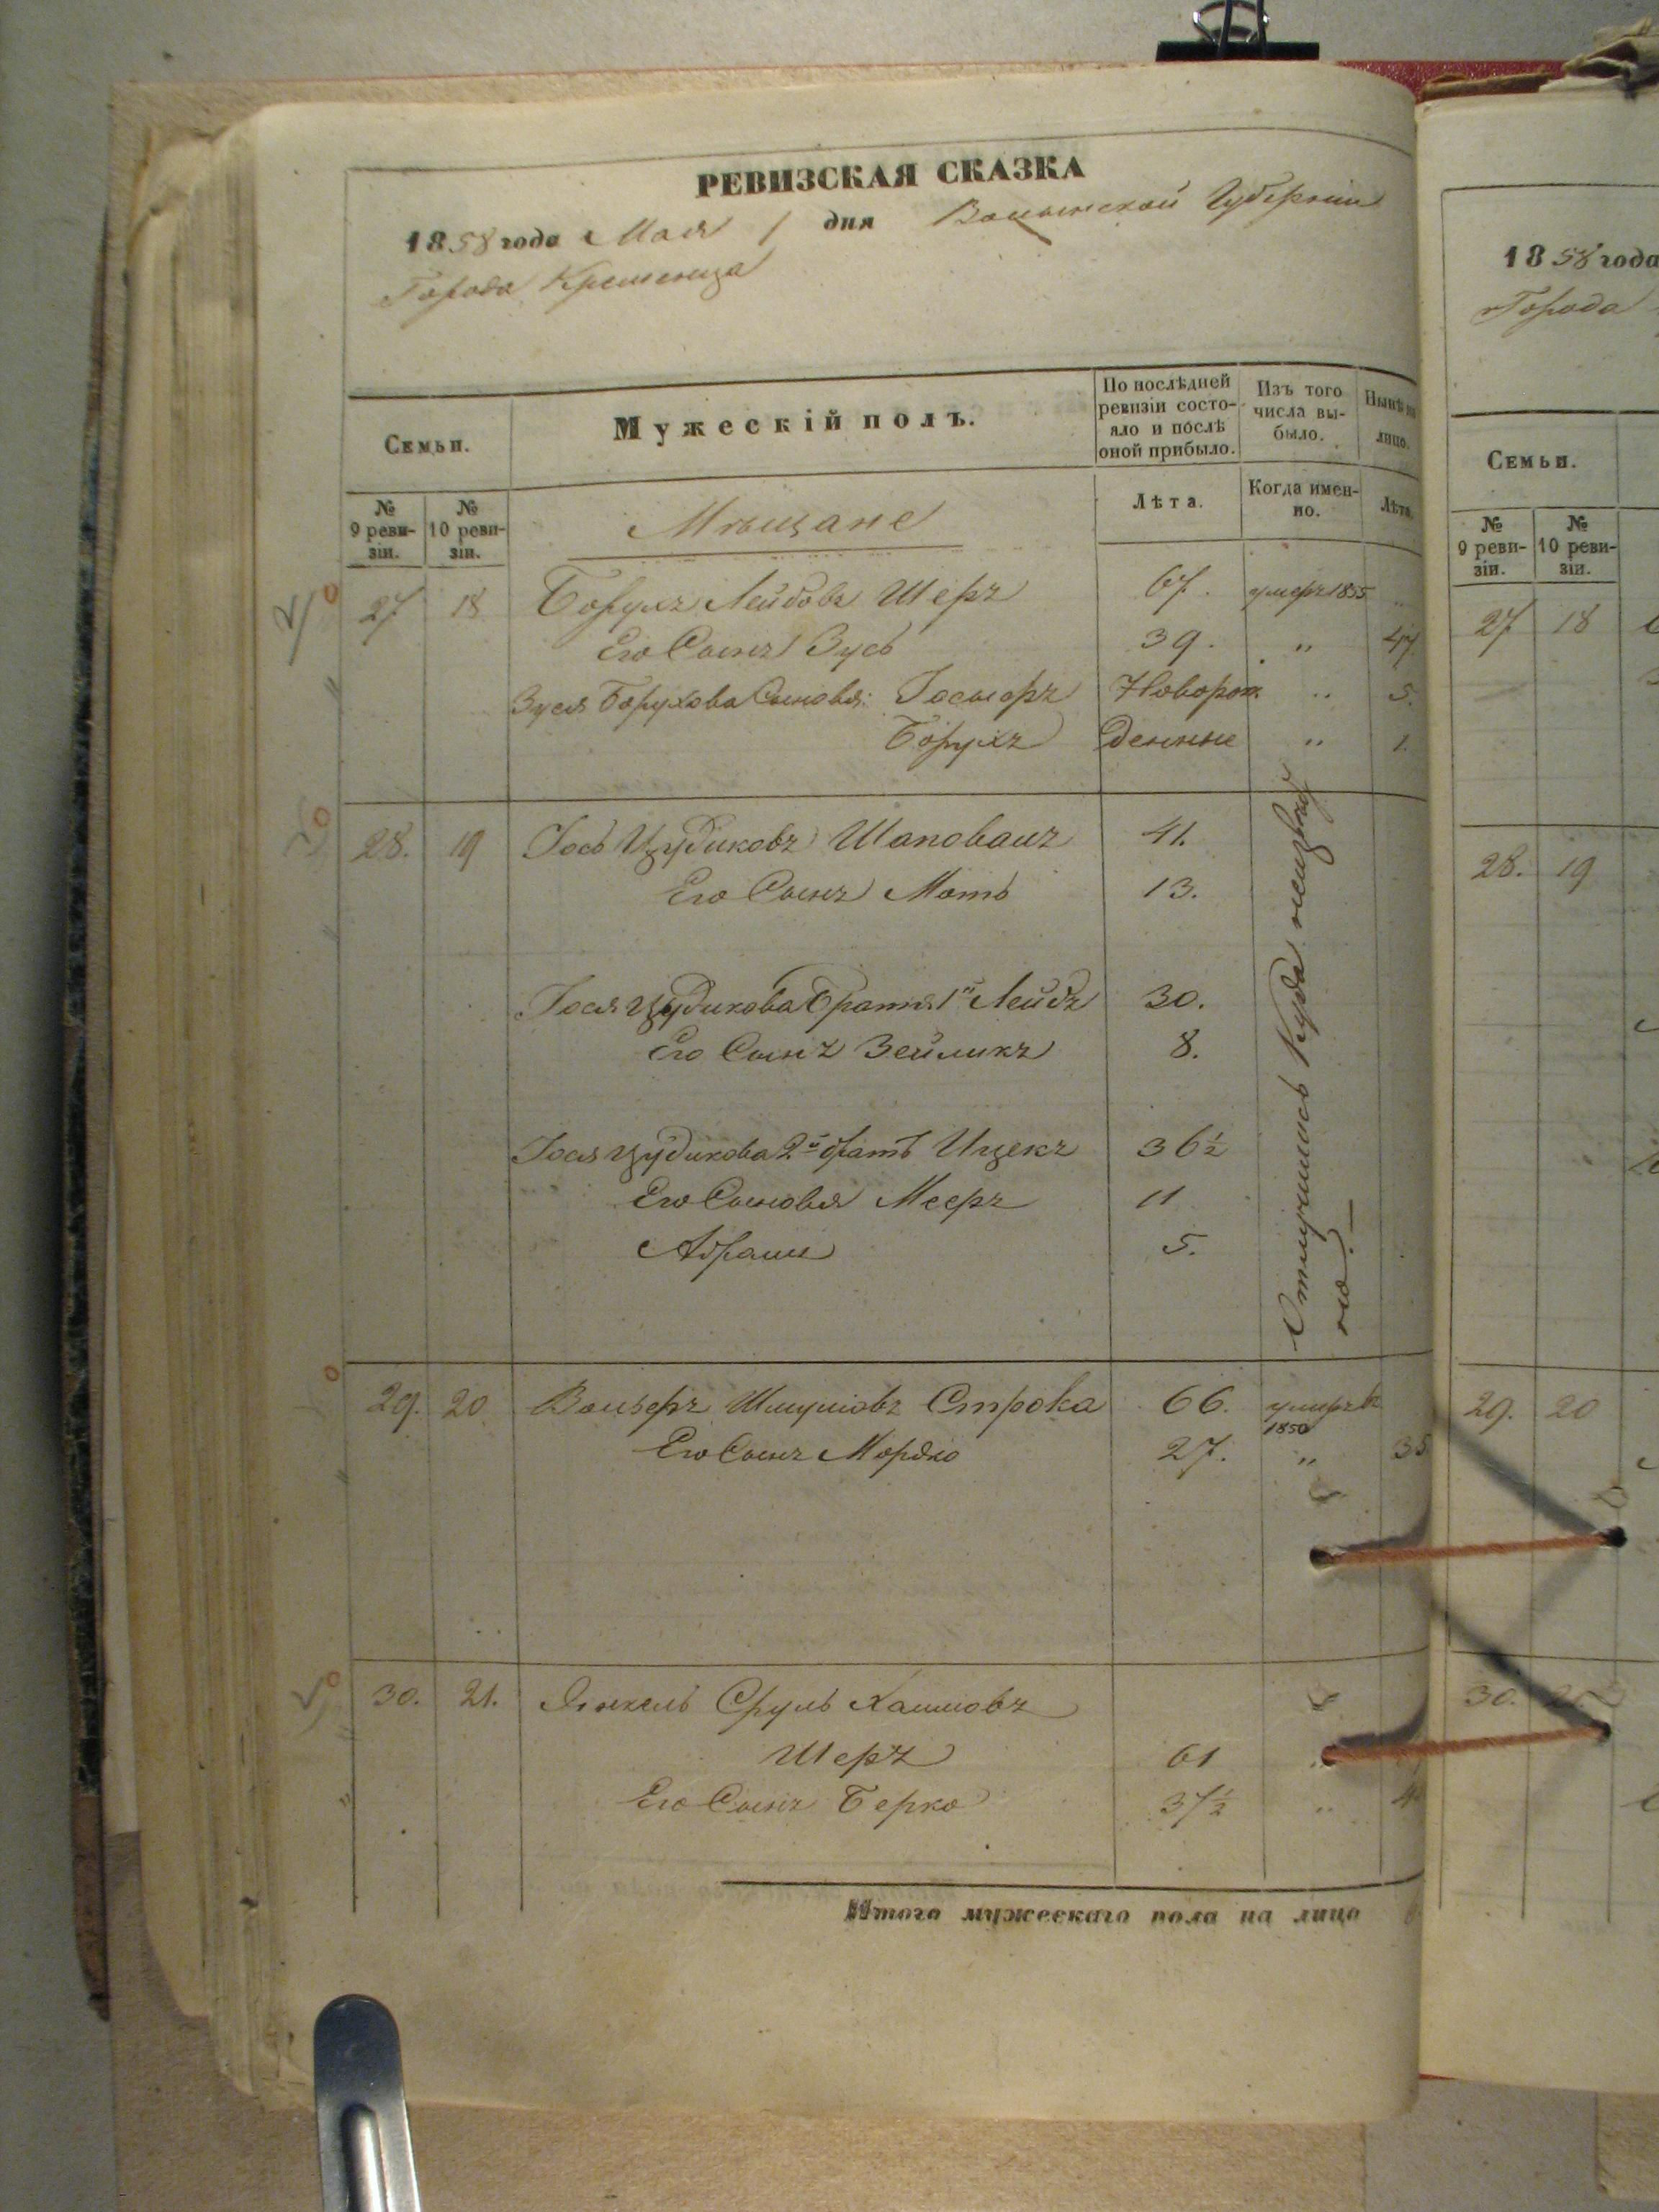 РЕВИЗСКАЯ СКАЗКА
1858 года Мая 1 дня Волынской Губернии
Города Кременца
Семьи.
Мужескій полъ.
По послѣдней ревизіи состояло и послѣ оной прибыло.
Изъ того числа выбыло.
Нынѣ на лицо.
№ 9 ревизіи.
№ 10 ревизіи.
Мѣщане
Лѣта.
Когда именно.
Лѣта.
27 18 Борухъ Лейбовъ Шеръ 67. умеръ 1855 „
Его Сынъ Зусь 39. „ 47
Зуся Борухова Сыновья: Іосьперъ Новорож „ 5.
Борухъ денные „ 1.
28. 19 Іось Цудиковъ Шаповалъ 41.
Его Сынъ Моть 13.
Іося Цудикова Братья 1й Лейбъ 30.
Его Сынъ Зейликъ 8.
Іося Цудикова 2й братъ Ицекъ 36½
Его Сыновья Мееръ 11
Абрам 5.
Отлучилось Куда неизвѣстно. —
29. 20 Вольферъ Шмуловъ Строка 66. умеръ въ 1850
Его Сынъ Мордко 27. „ 35
30. 21. Янкель Сруль Хаимовъ
Шеръ 61 „
Его Сынъ Берко 37½ „
Итого мужескаго пола на лицо
1858 года
Города
Семьи.
№ 9 ревизіи.
№ 10 ревизіи.
27 18
28. 19
29. 20
30. 21.